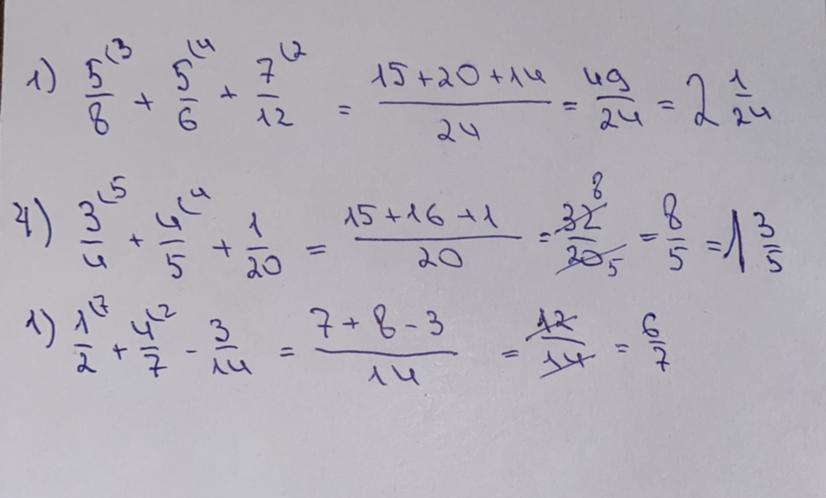 1) 5/8 (3 + 5/6 (4 + 7/12 (2 = (15+20+14)/24 = 49/24 = 2 1/24
4) 3/4 (5 + 4/5 (4 + 1/20 = (15+16+1)/20 = 32/20 8 5 = 8/5 = 1 3/5
1) 1/2 (7 + 4/7 (2 - 3/14 = (7+8-3)/14 = 12/14 = 6/7